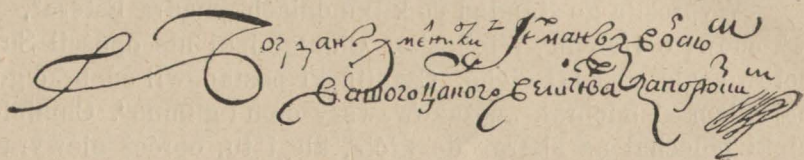 Богданъ Хмелницкий Гетманъ з Войскомъ
Вашого Царского Величества Запорозкимъ